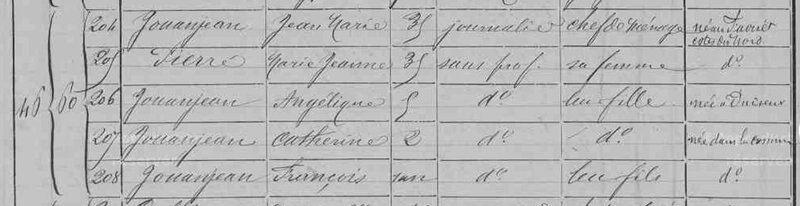 46 60
204 Jouanjean Jean Marie 35 journalier chef de ménage né au Faouët
côtes du Nord
205 Pierre Marie Jeanne 35 sans prof. sa femme do
206 Jouanjean Angélique 5 do leur fille née à
207 Jouanjean Catherine 2 do do née dans la commune
208 Jouanjean François 1 an do leur fils do